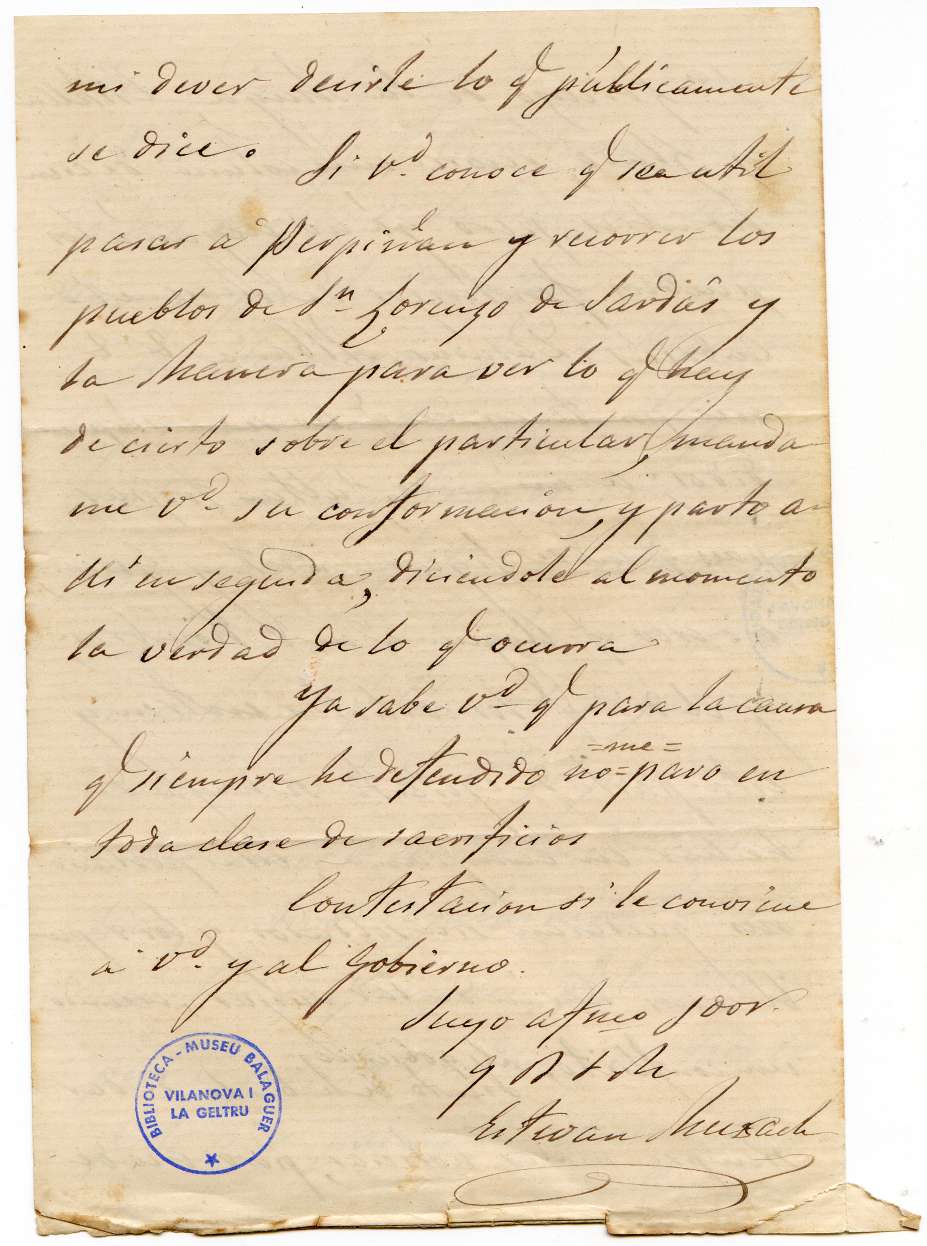 mi dever decirle lo q publicamente
se dice.
Si Vd. conoce q sea util
pasar á Perpiñan y recorrer los
pueblos de Sn Lorenzo de Sardás y
la Manera para ver lo q hay
de cierto sobre el particular, manda
me Vd. su conformacion, y parto a-
llí en seguida, diciendole al momento
la verdad de lo q ocurra
Ya sabe Vd q para la causa
=me=
q siempre he defendido no=paro en
toda clase de sacrificios
Contestacion si le conviene
á Vd. y al Gobierno.
Suyo afmo
q
Estevan
BIBLIOTECA - MUSEU BALAGUER
VILANOVA I
LA GELTRU